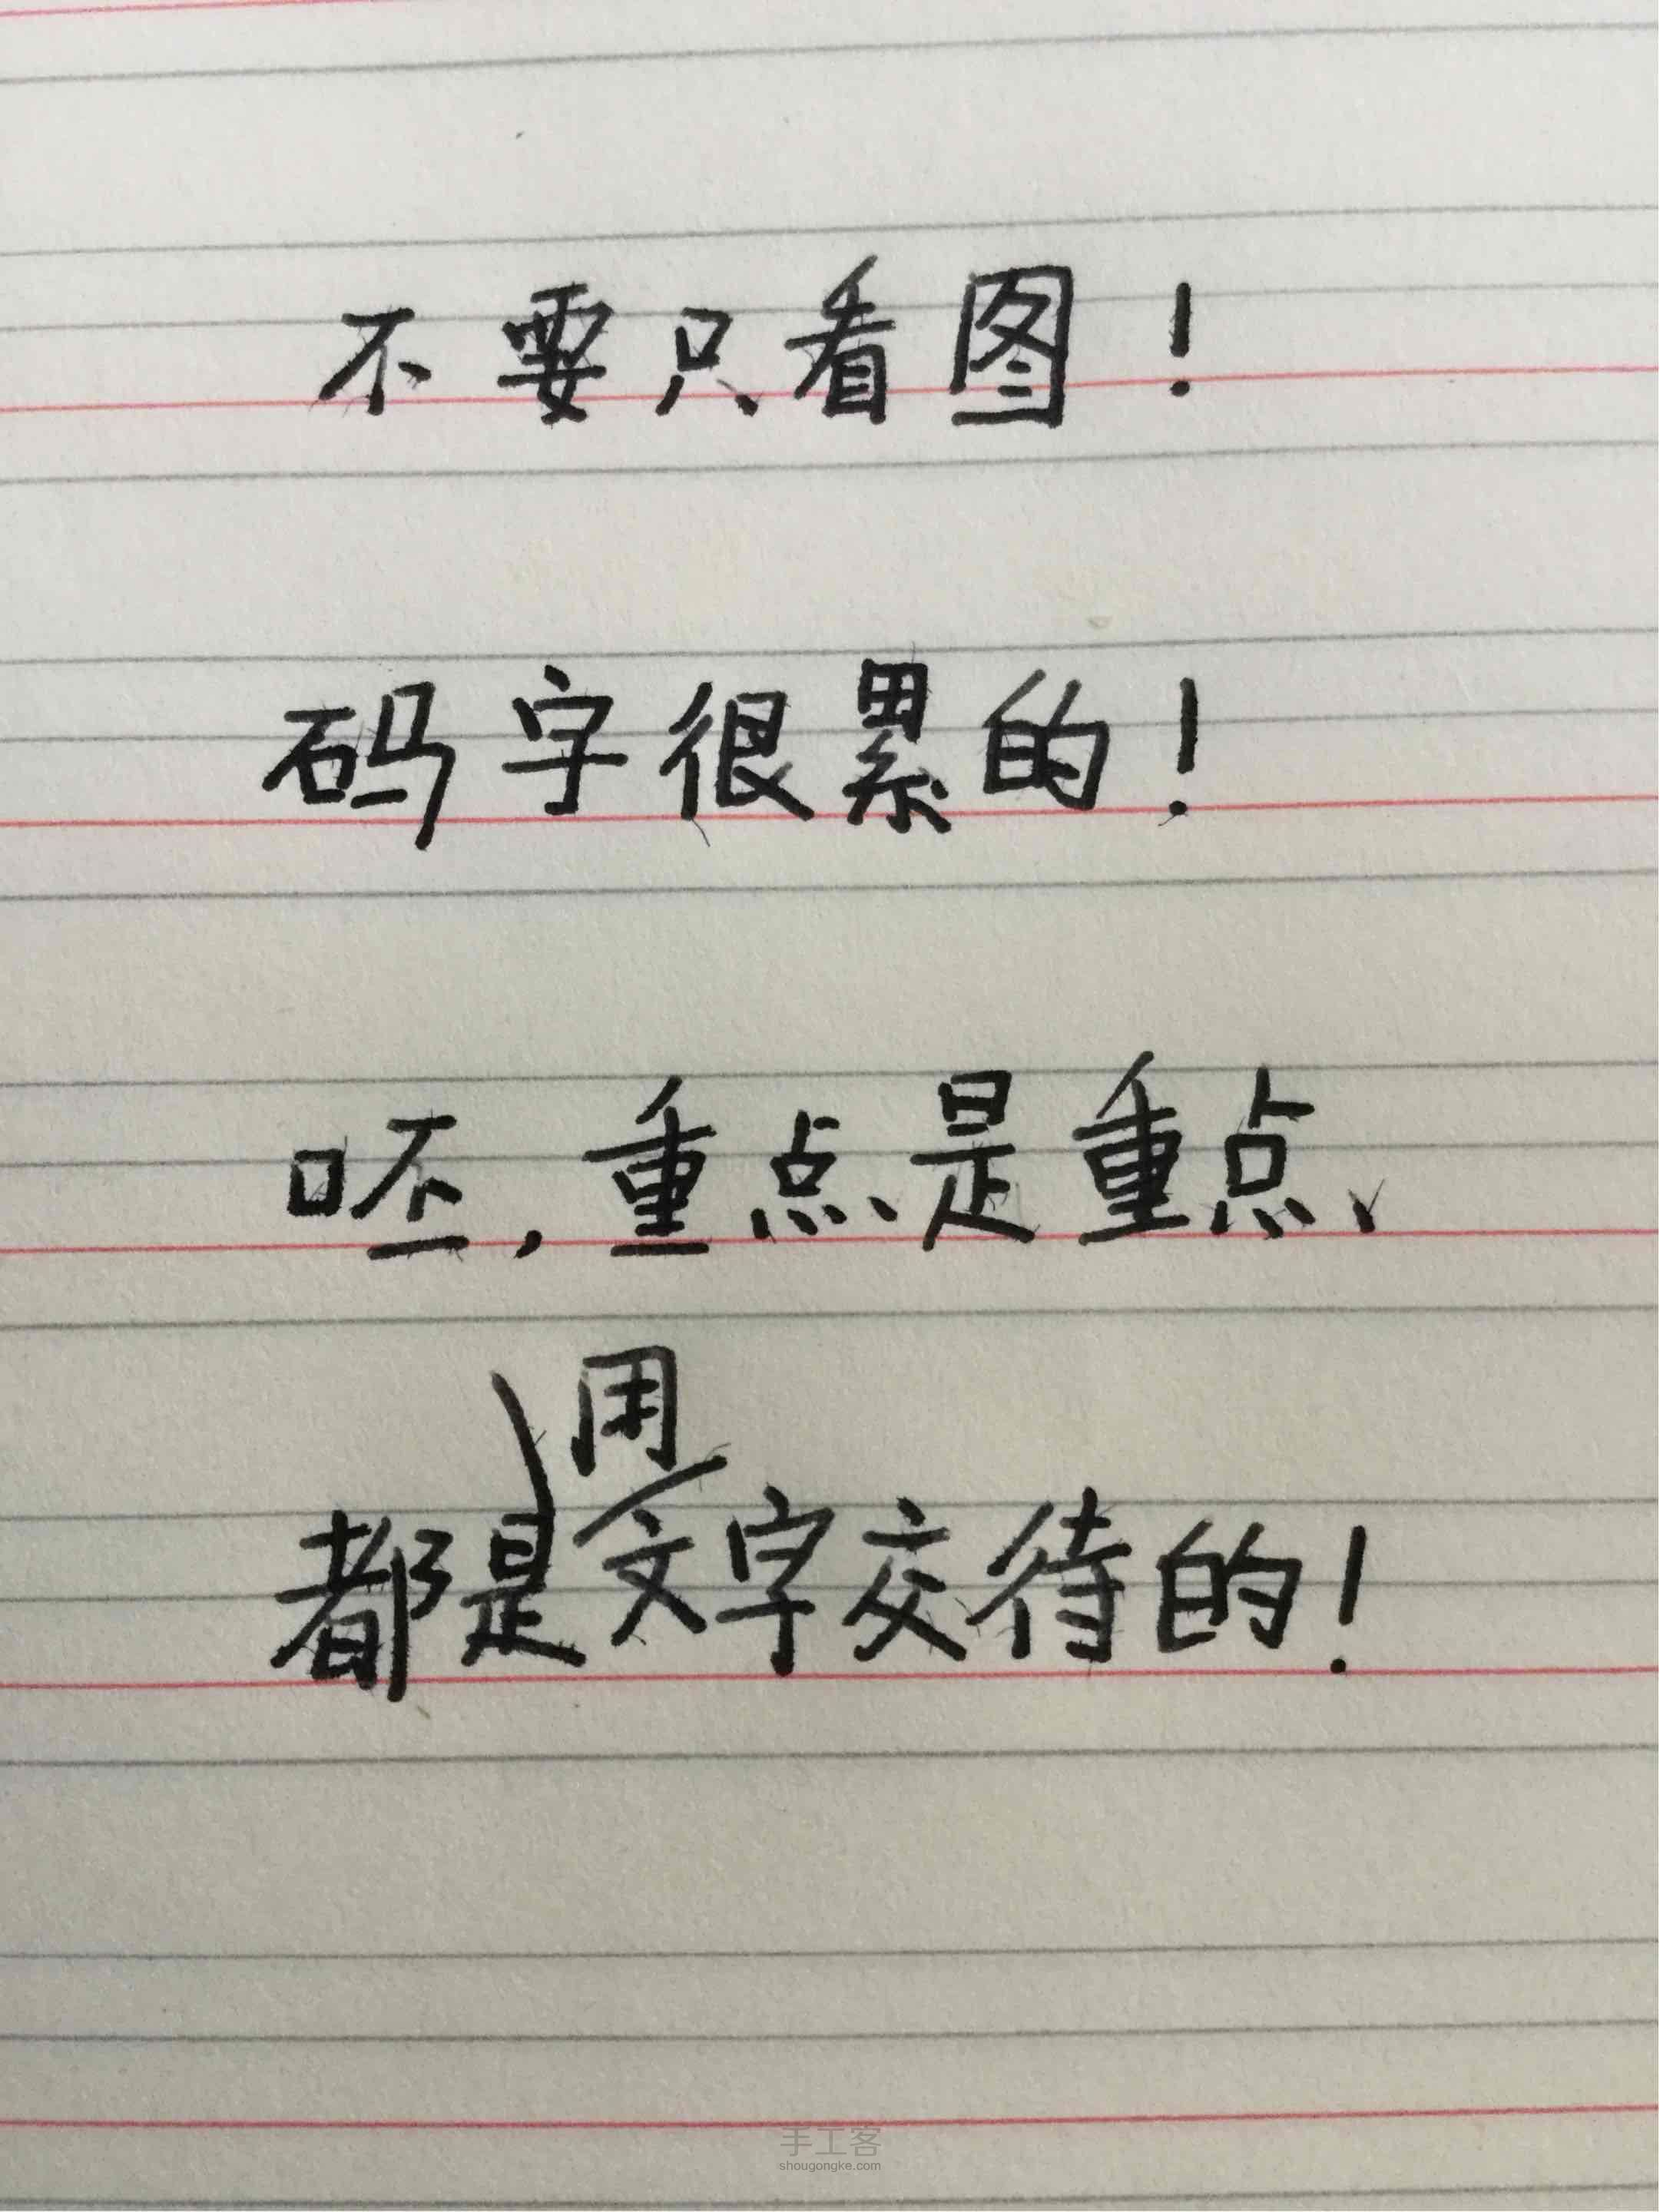 不要只看图！
码字很累的！
呸，重点是重点、
都是用文字交待的！
手工客
shougongke.com